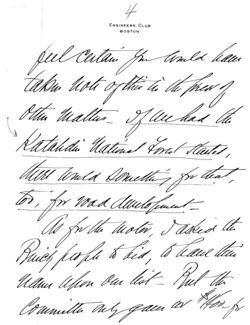 4
ENGINEERS CLUB
BOSTON
feel certain you would have
taken note of this in the press of
other matters. If we had the
Katahdin National Forest started,
there would something for that,
too, for road development.
As for the motor, I asked the
Buick people to bid, to have their
name upon our list - But the
Committee only gave us $ for